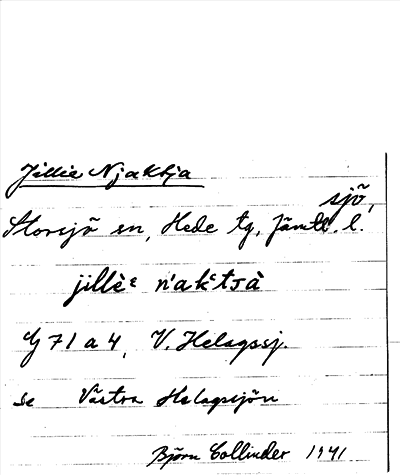 Jillie Njaktja
sjö,
Storsjö sn, Hede tg, Jämtl. l.
jillèᵉ ńakᵋtɪà
Gj 71 a 4, V. Helagssj.
se Västra Helagssjön
Björn Collinder 1941